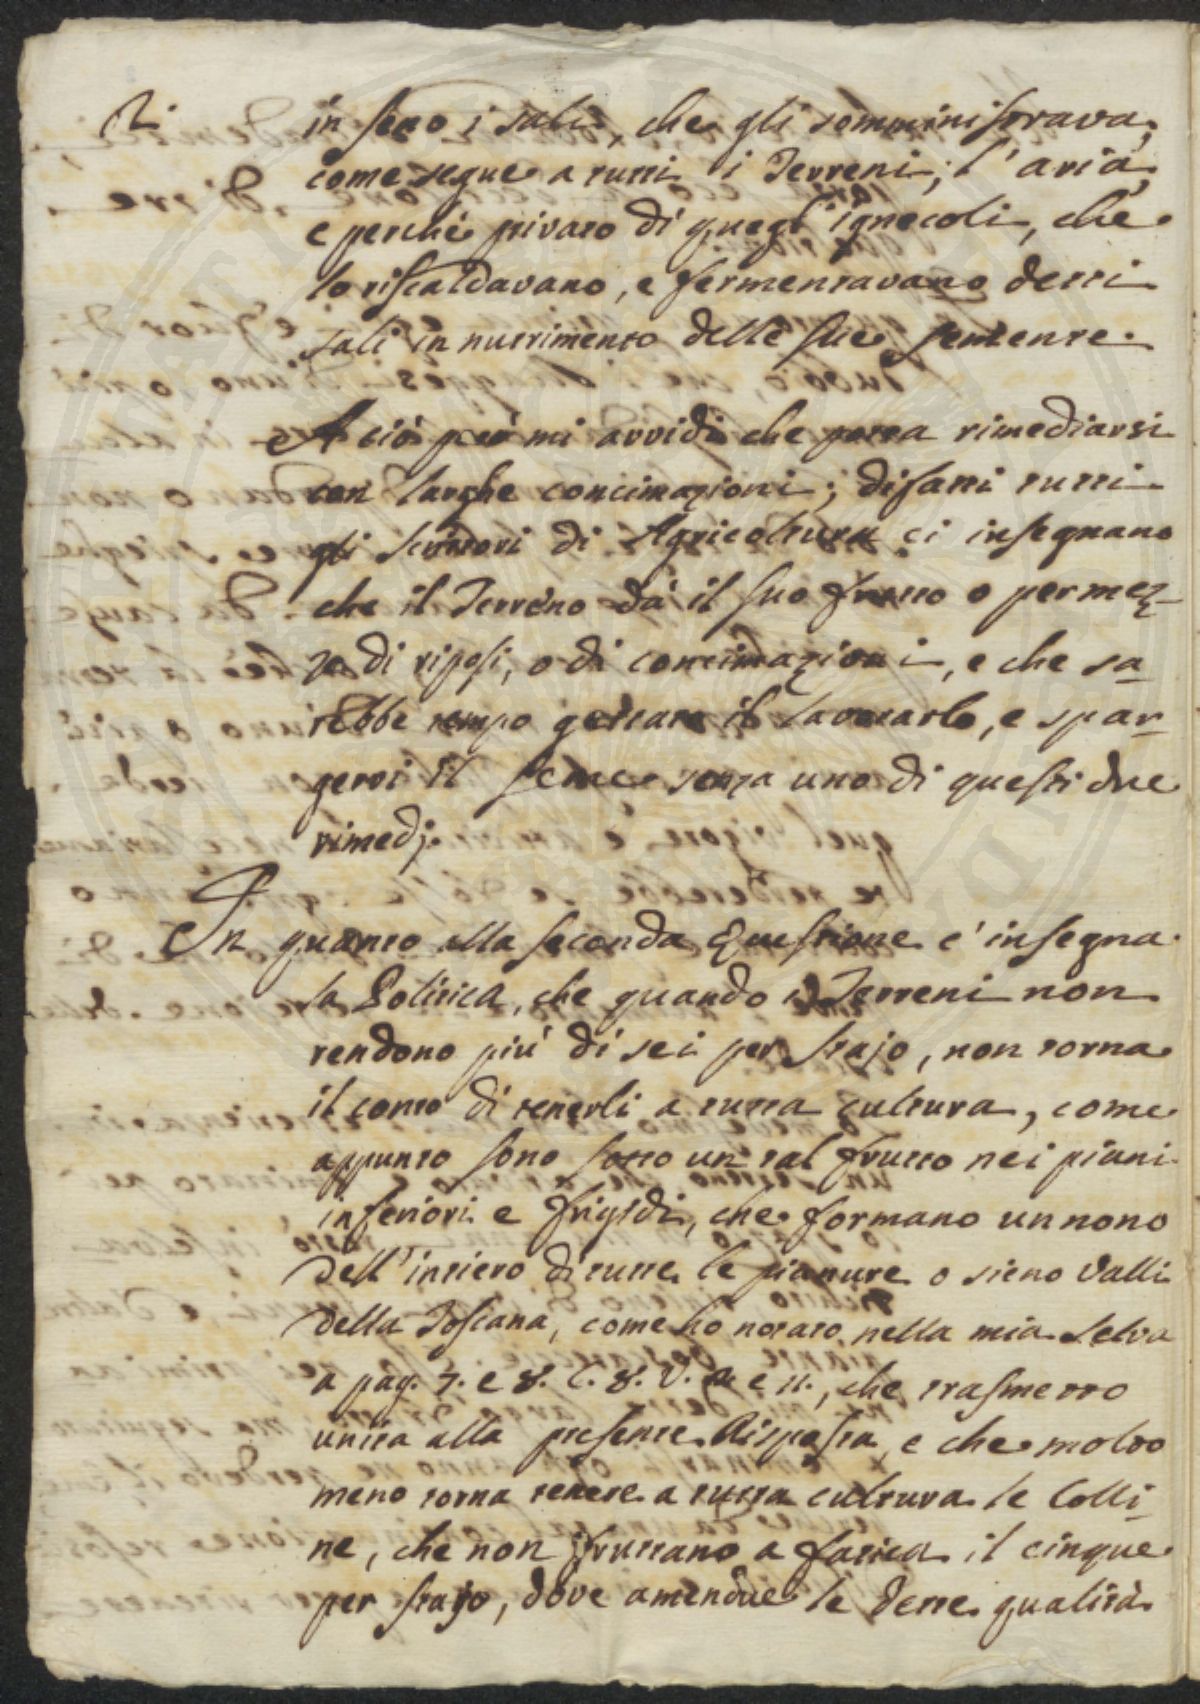 in seno i sali, che gli somministrava,
come segue a tutti i Terreni, l'aria,
e perchè privato di quegl'ignecoli, che
lo riscaldavano, e fermentavano detti
sali in nutrimento delle sue semente.
A ciò però mi avvidi che potea rimediarsi
con larghe concimazioni; difatti tutti
gli Scrittori di Agricoltura ci insegnano
che il Terreno dà il suo frutto o per mez-
zo di riposi, o di concimazioni, e che sa-
rebbe tempo gettato il lavorarlo, e spar-
gervi il seme senza uno di questi due
rimedj.
In quanto alla seconda Questione c'insegna
la Politica, che quando i Terreni non
rendono più di sei per stajo, non torna
il conto di tenerli a tutta cultura, come
appunto sono sotto un tal frutto nei piani
inferiori e frigidi, che formano un nono
dell'intiero di tutte le pianure o sieno Valli
della Toscana, come ho notato nella mia Selva
a pag. 7. e 8. C. 8. V. e 11., che trasmetto
unita alla presente Risposta, e che molto
meno torna tenere a tutta cultura le Colli-
ne, che non fruttano a fatica il cinque
per stajo, dove amendue le dette qualità